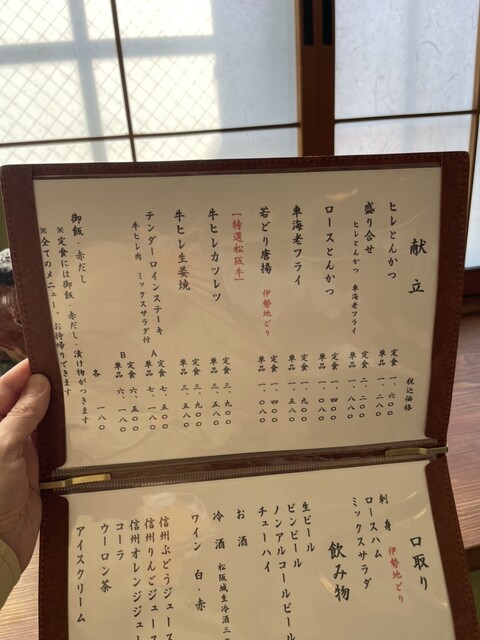 献立
税込価格
ヒレとんかつ 定食 一、六〇〇
単品 一、二八〇
盛り合せ 定食 二、二〇〇
ヒレとんかつ 車海老フライ 単品 一、八八〇
ロースとんかつ 定食 一、四〇〇
単品 一、〇八〇
車海老フライ 定食 一、九〇〇
単品 一、五八〇
若どり唐揚 伊勢地どり 定食 一、四〇〇
単品 一、〇八〇
【特選松阪牛】
牛ヒレカツレツ 定食 三、九〇〇
単品 三、五八〇
牛ヒレ生姜焼 定食 三、九〇〇
単品 三、五八〇
テンダーロインステーキ A 定食 七、五〇〇
ミックスサラダ付 単品 七、一八〇
牛ヒレ肉 B 定食 六、五〇〇
単品 六、一八〇
御飯・赤だし 各 一八〇
※定食には御飯・赤だし・漬け物がつきます
※全てのメニュー、お持帰りできます
口取り
刺身 伊勢地どり
ロースハム
ミックスサラダ
飲み物
生ビール
ビンビール
ノンアルコールビール
チューハイ
お酒
冷酒 松阪城生冷酒三
ワイン 白・赤
信州ぶどうジュース
信州りんごジュース
信州オレンジジュー
コーラ
ウーロン茶
アイスクリーム